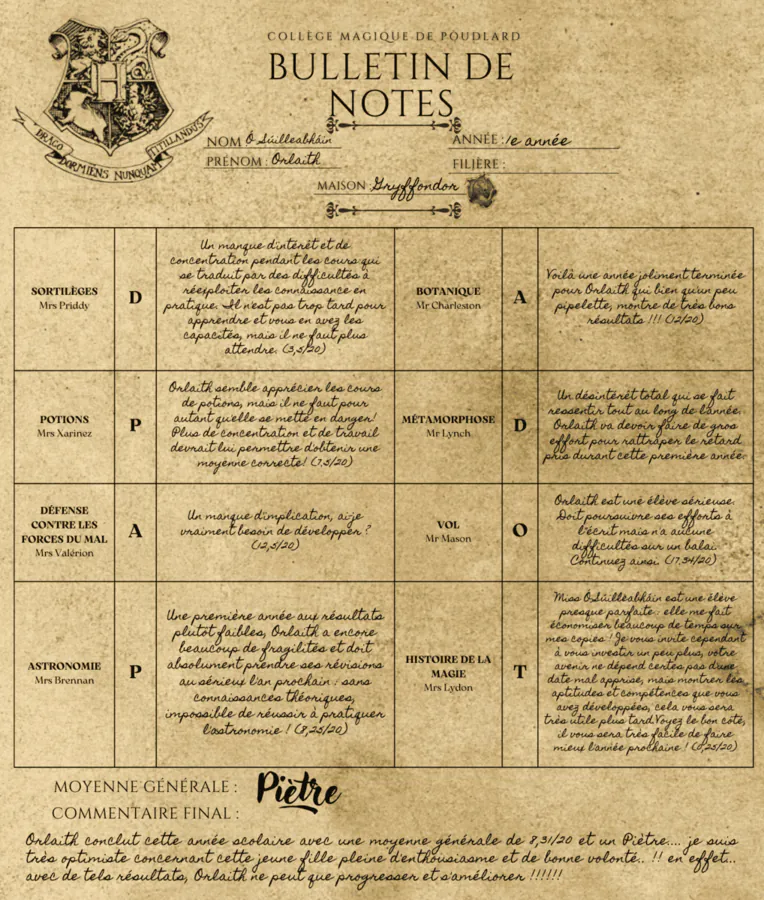 COLLÈGE MAGIQUE DE POUDLARD
BULLETIN DE
NOTES
H
DRACO
DORMIENS NUNQUAM
TITILLANDUS
NOM Ó Súilleabháin
ANNÉE : 1e année
PRÉNOM : Orlaith
FILIÈRE :
MAISON : Gryffondor
SORTILÈGES
Mrs Priddy
D
Un manque d'intérêt et de
concentration pendant les cours qui
se traduit par des difficultés à
réexploiter les connaissance en
pratique. Il n'est pas trop tard pour
apprendre et vous en avez les
capacités, mais il ne faut plus
attendre. (3,5/20)
BOTANIQUE
Mr Charleston
A
Voilà une année joliment terminée
pour Orlaith qui bien qu'un peu
pipelette, montre de très bons
résultats !!! (12/20)
POTIONS
Mrs Xarinez
P
Orlaith semble apprécier les cours
de potions, mais il ne faut pour
autant qu'elle se mette en danger!
Plus de concentration et de travail
devrait lui permettre d'obtenir une
moyenne correcte! (7,5/20)
MÉTAMORPHOSE
Mr Lynch
D
Un désintérêt total qui se fait
ressentir tout au long de l'année.
Orlaith va devoir faire de gros
effort pour rattraper le retard
pris durant cette première année.
DÉFENSE
CONTRE LES
FORCES DU MAL
Mrs Valérion
A
Un manque d'implication, ai-je
vraiment besoin de développer ?
(12,5/20)
VOL
Mr Mason
O
Orlaith est une élève sérieuse.
Doit poursuivre ses efforts à
l'écrit mais n'a aucune
difficultés sur un balai.
Continuez ainsi. (17,54/20)
ASTRONOMIE
Mrs Brennan
P
Une première année aux résultats
plutôt faibles, Orlaith a encore
beaucoup de fragilités et doit
absolument prendre ses révisions
au sérieux l'an prochain : sans
connaissances théoriques,
impossible de réussir à pratiquer
l'astronomie ! (8,25/20)
HISTOIRE DE LA
MAGIE
Mrs Lydon
T
Miss Ó Súilleabháin est une élève
presque parfaite : elle me fait
économiser beaucoup de temps sur
mes copies ! Je vous invite cependant
à vous investir un peu plus, votre
avenir ne dépend certes pas d'une
date mal apprise, mais montrer les
aptitudes et compétences que vous
avez développées, cela vous sera
très utile plus tard. Voyez le bon côté,
il vous sera très facile de faire
mieux l'année prochaine ! (0,25/20)
MOYENNE GÉNÉRALE : Piètre
COMMENTAIRE FINAL :
Orlaith conclut cette année scolaire avec une moyenne générale de 8,31/20 et un Piètre.... je suis
très optimiste concernant cette jeune fille pleine d'enthousiasme et de bonne volonté.. !! en effet...
avec de tels résultats, Orlaith ne peut que progresser et s'améliorer !!!!!!